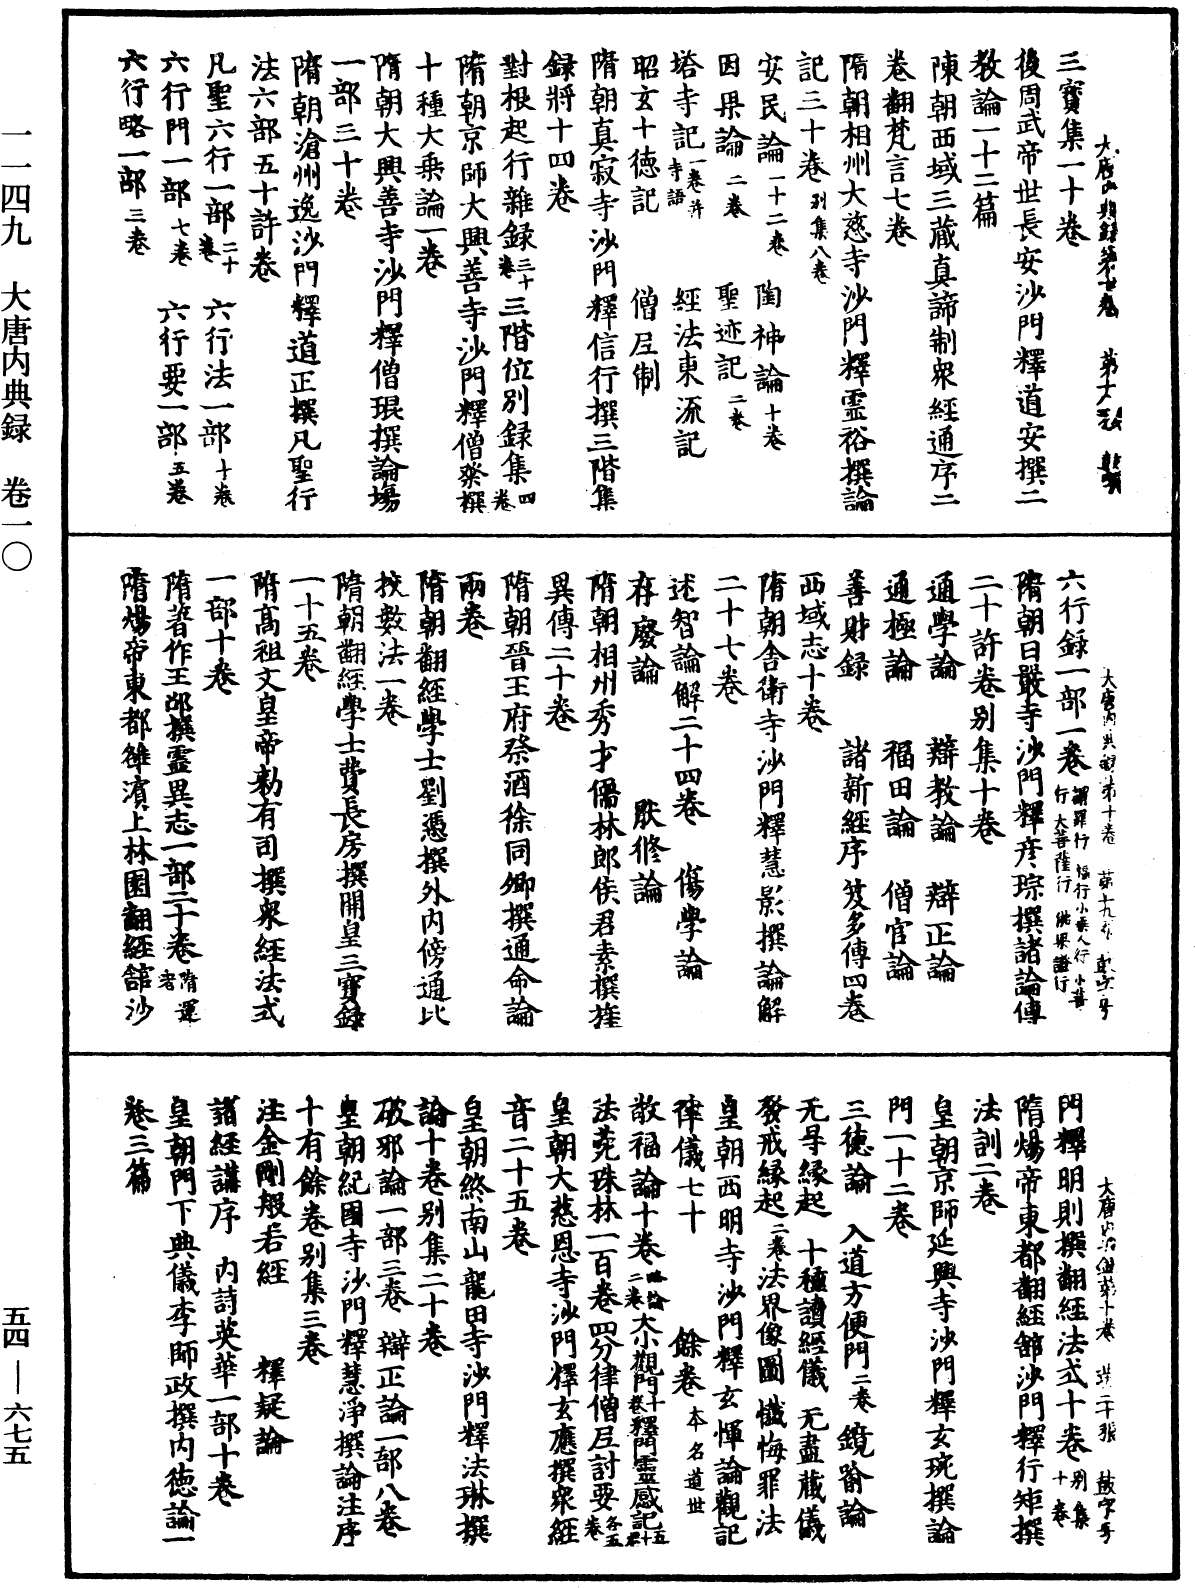 三寶集一十卷
後周武帝世長安沙門釋道安撰二
教論一十二篇
陳朝西域三藏真諦制衆經通序二
卷翻梵言七卷
隋朝相州大慈寺沙門釋靈裕撰論
記三十卷 別集八卷
安民論 一十二卷 陶神論 十卷
因果論 二卷 聖迹記 二卷
塔寺記 一卷并寺語 經法東流記
昭玄十徳記 僧尼制
隋朝真寂寺沙門釋信行撰三階集
録將十四卷
對根起行雜録 三十卷 三階位別録集 四卷
隋朝京師大興善寺沙門釋僧粲撰
十種大乘論一卷
隋朝大興善寺沙門釋僧琨撰論場
一部三十卷
隋朝滄州逸沙門釋道正撰凡聖行
法六部五十許卷
凡聖六行一部 二十卷 六行法一部 十卷
六行門一部 七卷 六行要一部 五卷
六行略一部 三卷
大唐内典録第十卷 第十九張
六行録一部一卷 謂罪行 福行小乘人行 小菩行 大菩薩行 佛果證行
隋朝日嚴寺沙門釋彦琮撰諸論傳
二十許卷別集十卷
通學論 辯教論 辯正論
通極論 福田論 僧官論
善財録 諸新經序 笈多傳四卷
西域志十卷
隋朝舍衛寺沙門釋慧影撰論解
二十七卷
述智論解二十四卷 傷學論
存廢論 厭修論
隋朝相州秀才儒林郎侯君素撰旌
異傳二十卷
隋朝晉王府祭酒徐同卿撰通命論
兩卷
隋朝翻經學士劉憑撰外内傍通比
挍數法一卷
隋朝翻經學士費長房撰開皇三寶録
一十五卷
隋高祖文皇帝勑有司撰衆經法式
一部十卷
隋著作王邵撰靈異志一部二十卷 隋運者
隋煬帝東都雒濱上林園翻經舘沙
大唐内典録第十卷 第二十張 鼓字号
門釋明則撰翻經法式十卷 別集十卷
隋煬帝東都翻經舘沙門釋行矩撰
法訓二卷
皇朝京師延興寺沙門釋玄琬撰論
門一十二卷
三徳論 入道方便門 二卷 鏡喻論
无㝵縁起 十種讀經儀 无盡藏儀
發戒縁起 二卷 法界像圖 懺悔罪法
皇朝西明寺沙門釋玄惲論觀記
律儀七十餘卷 本名道世
敬福論十卷 略論二卷 大小觀門 十卷 釋門靈感記 五十卷
法苑珠林一百卷四分律僧尼討要 各五卷
皇朝大慈恩寺沙門釋玄應撰衆經
音二十五卷
皇朝終南山龍田寺沙門釋法琳撰
論十卷別集二十卷
破邪論一部三卷 辯正論一部八卷
皇朝紀國寺沙門釋慧淨撰論注序
十有餘卷別集三卷
注金剛般若經 釋疑論
諸經講序 内詩英華一部十卷
皇朝門下典儀李師政撰内徳論一
卷三篇
一一四九 大唐内典録 卷一〇
五四—六七五